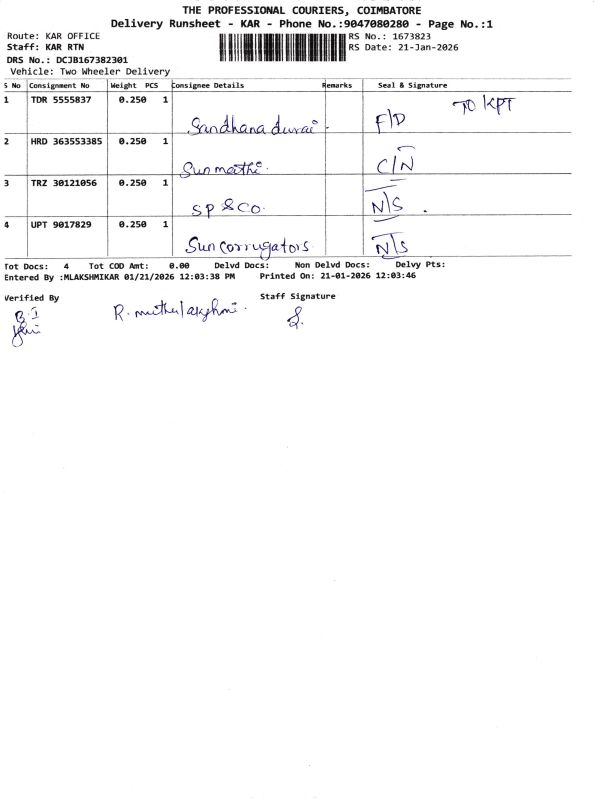 THE PROFESSIONAL COURIERS, COIMBATORE
Delivery Runsheet - KAR - Phone No.:9047080280 - Page No.:1
Route: KAR OFFICE RS No.: 1673823
Staff: KAR RTN RS Date: 21-Jan-2026
DRS No.: DCJB167382301
Vehicle: Two Wheeler Delivery
S No Consignment No Weight PCS Consignee Details Remarks Seal & Signature
1 TDR 5555837 0.250 1 Sandhana durai F/D TO KPT
2 HRD 363553385 0.250 1 Sunmathi. C/N
3 TRZ 30121056 0.250 1 SP & CO. N/S .
4 UPT 9017829 0.250 1 Sun corrugators N/S
Tot Docs: 4 Tot COD Amt: 0.00 Delvd Docs: Non Delvd Docs: Delvy Pts:
Entered By :MLAKSHMIKAR 01/21/2026 12:03:38 PM Printed On: 21-01-2026 12:03:46
Verified By Staff Signature
R. muthulakshmi.